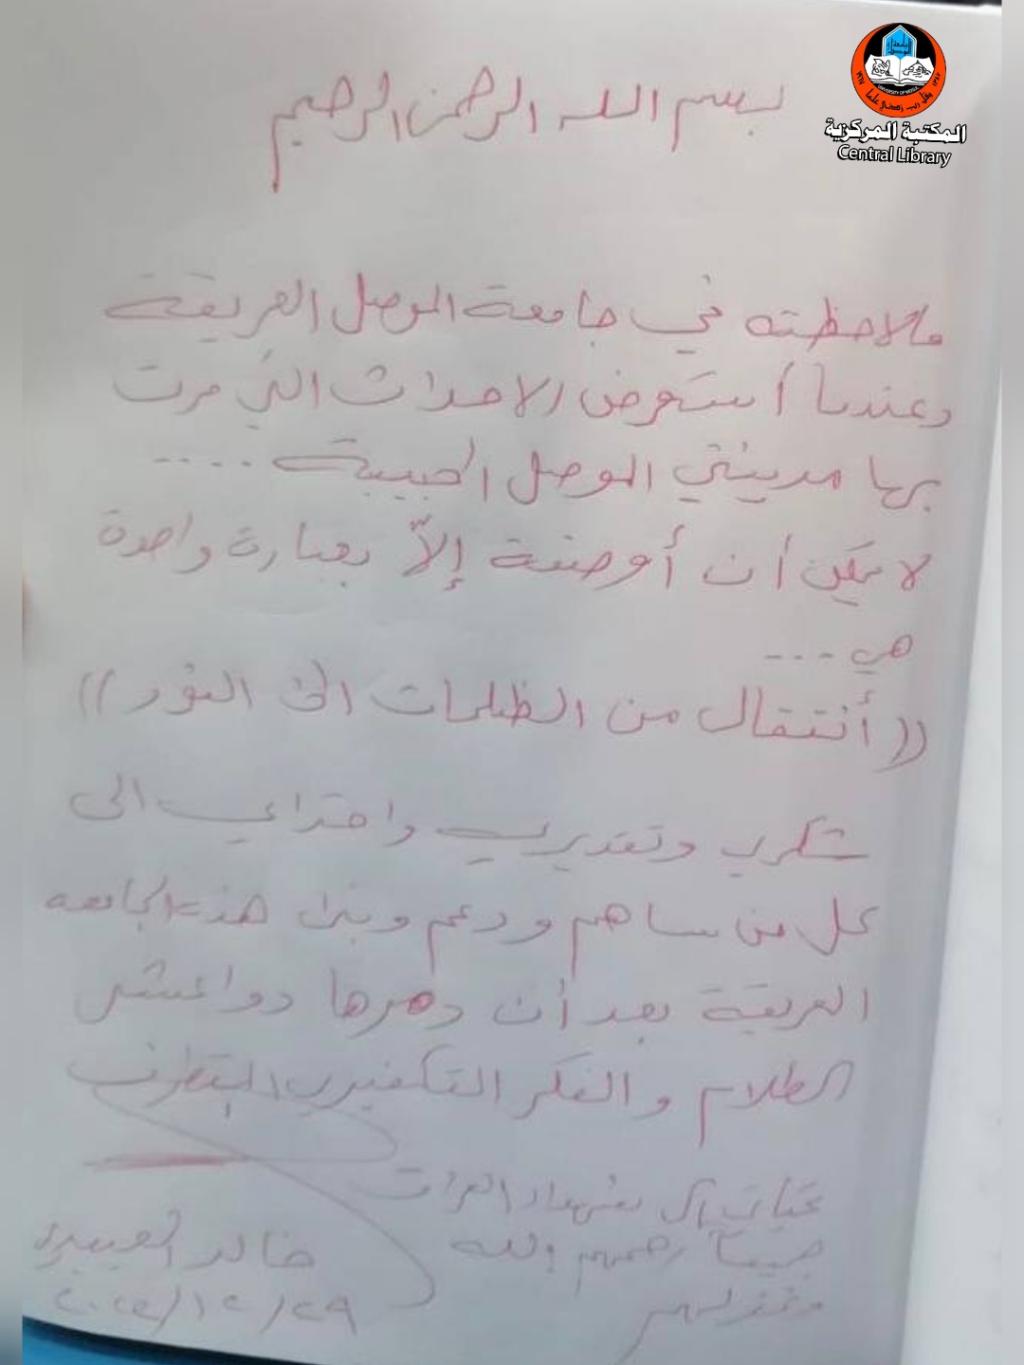 المكتبة المركزية
Central Library
بسم الله الرحمن الرحيم
ملاحظته في جامعة الموصل العريقة
وعندما أستعرض الاحداث التي مرت
بها مدينتي الموصل الحبيبة ....
لا يمكن أن أوصفة إلاّ بعبارة واحدة
هي ...
((أنتقال من الظلمات الى النور))
شكري وتقديري واحترامي الى
كل من ساهم ودعم وبنى هذه الجامعه
العريقة بعد أن دمرها دواعش
الظلام والفكر التكفيري المتطرف
تحياتي الى شهداء العراق
جميعاً رحمهم الله
وغفر لهم
خالد العبيدي
٢٠٢٤/١٢/٢٩